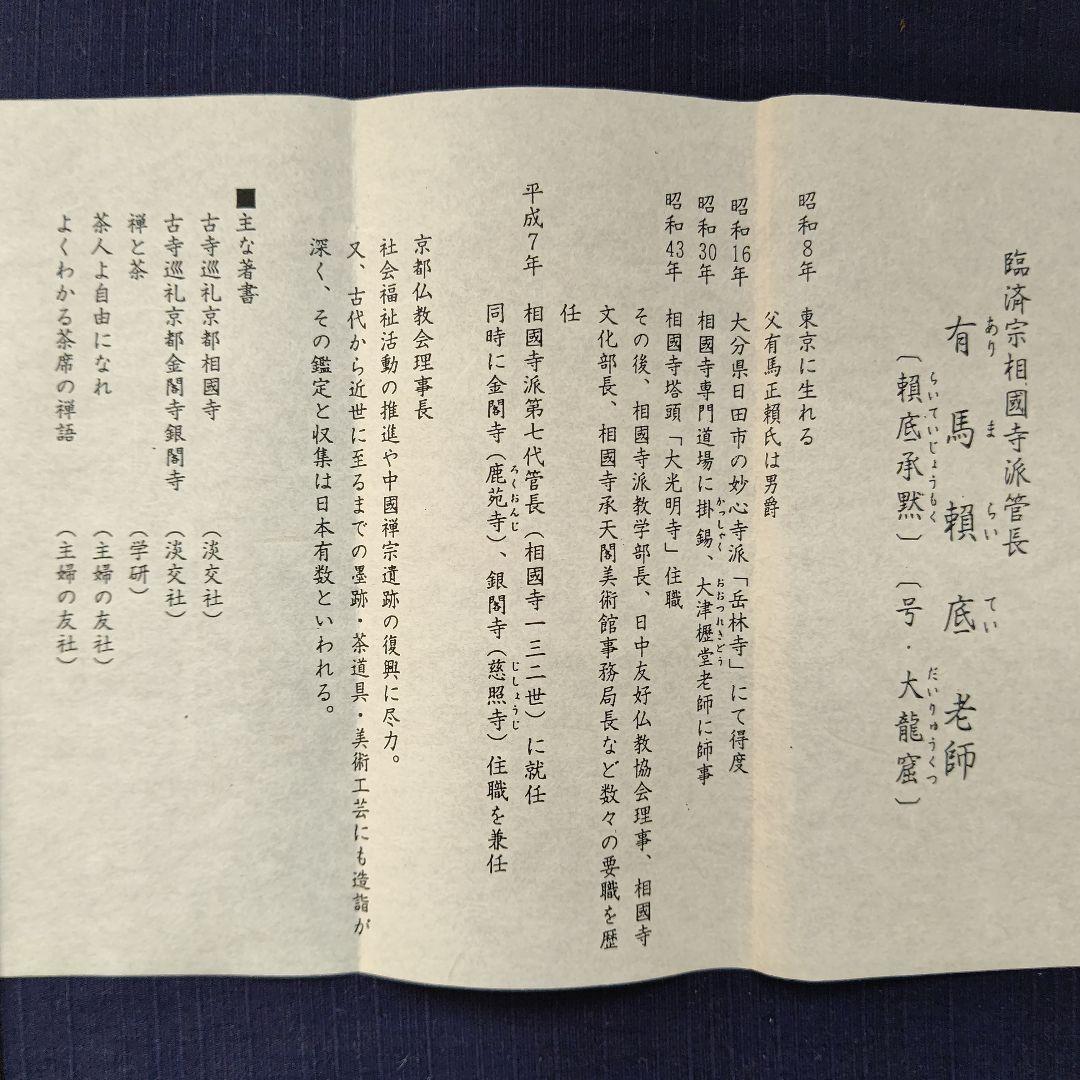 臨済宗相國寺派管長
有馬賴底老師
ありまらいてい
〔賴底承黙〕〔号・大龍窟〕
らいていじょうもく だいりゅうくつ
昭和8年 東京に生れる
父有馬正賴氏は男爵
昭和16年 大分県日田市の妙心寺派「岳林寺」にて得度
昭和30年 相國寺専門道場に掛錫、大津櫪堂老師に師事
かっしゃく おおつれきどう
昭和43年 相國寺塔頭「大光明寺」住職
その後、相國寺派教学部長、日中友好仏教協会理事、相國寺
文化部長、相國寺承天閣美術館事務局長など数々の要職を歴
任
平成7年 相國寺派第七代管長（相國寺一三二世）に就任
同時に金閣寺（鹿苑寺）、銀閣寺（慈照寺）住職を兼任
ろくおんじ じしょうじ
京都仏教会理事長
社会福祉活動の推進や中國禅宗遺跡の復興に尽力。
又、古代から近世に至るまでの墨跡・茶道具・美術工芸にも造詣が
深く、その鑑定と収集は日本有数といわれる。
■主な著書
古寺巡礼京都相國寺 （淡交社）
古寺巡礼京都金閣寺銀閣寺 （淡交社）
禅と茶 （学研）
茶人よ自由になれ （主婦の友社）
よくわかる茶席の禅語 （主婦の友社）